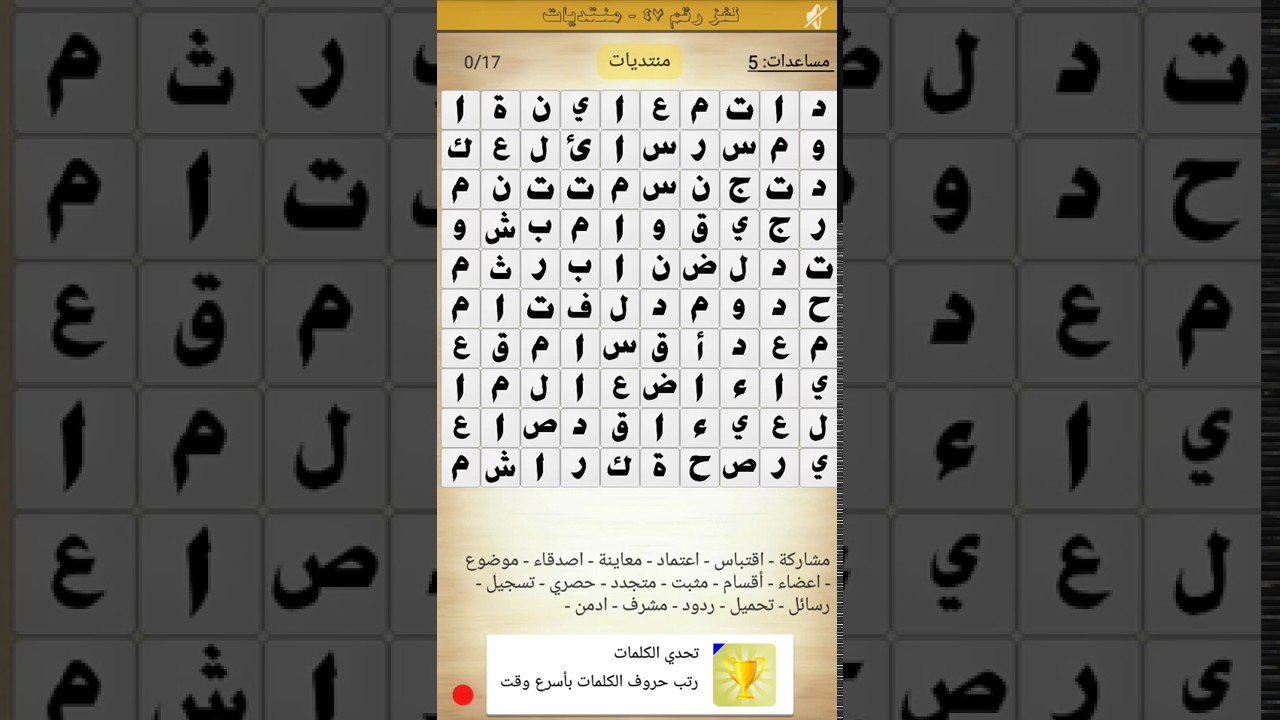 لغز رقم ٤٧ - منتديات
مساعدات: 5 منتديات 0/17
د ا ت م ع ا ي ن ة ا
و م س ر س ا ئ ل ع ك
د ت ج ن س م ت ت ن م
ر ج ي ق و ا م ب ش و
ت د ل ض ن ا ب ر ث م
ح د و م د ل ف ت ا م
م ع د أ ق س ا م ق ع
ي ا ء ا ض ع ا ل م ا
ل ع ي ء ا ق د ص ا ع
ي ر ص ح ة ك ر ا ش م
مشاركة - اقتباس - اعتماد - معاينة - اصدقاء - موضوع
- اعضاء - أقسام - مثبت - متجدد - حصري - تسجيل -
رسائل - تحميل - ردود - مشرف - ادمن -
تحدي الكلمات
رتب حروف الكلمات بأسرع وقت